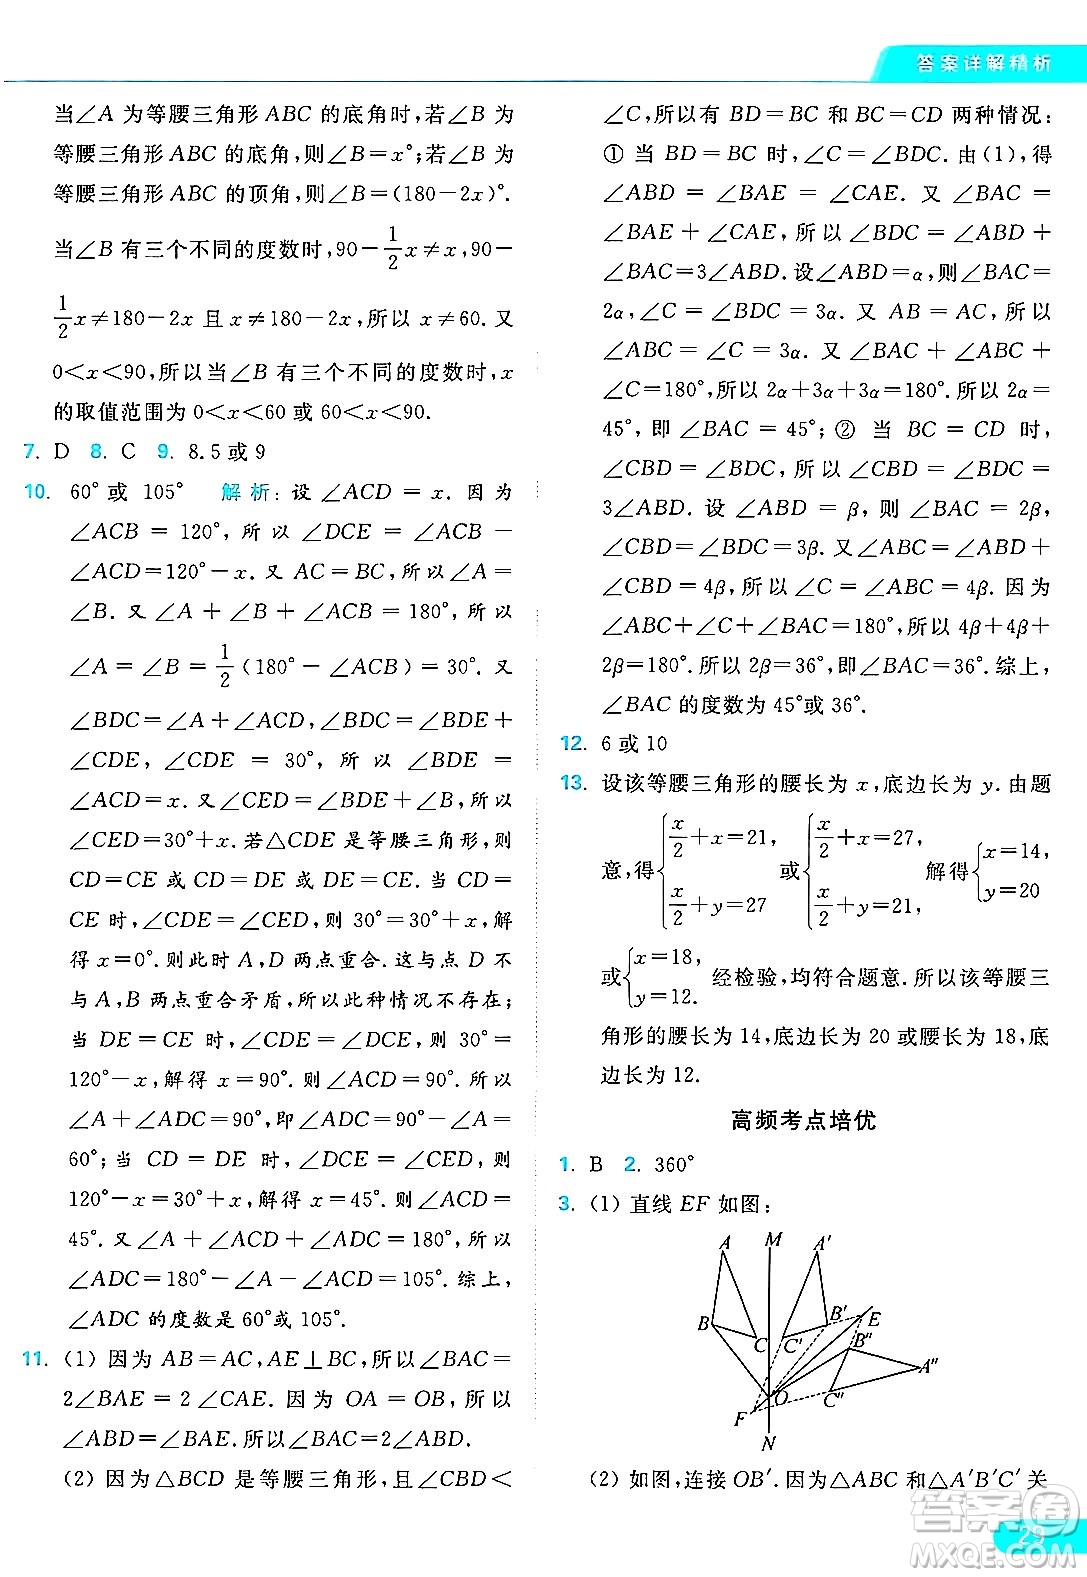 答案详解精析
当∠A 为等腰三角形 ABC 的底角时,若∠B 为
等腰三角形 ABC 的底角,则∠B=x°;若∠B 为
等腰三角形 ABC 的顶角,则∠B=(180-2x)°.
当∠B 有三个不同的度数时,90-1/2x≠x,90-
1/2x≠180-2x 且 x≠180-2x,所以 x≠60.又
0<x<90,所以当∠B 有三个不同的度数时,x
的取值范围为 0<x<60 或 60<x<90.
7. D 8. C 9. 8.5 或 9
10. 60°或 105° 解析:设 ∠ACD = x.因为
∠ACB = 120°,所以 ∠DCE = ∠ACB -
∠ACD=120°-x.又 AC=BC,所以∠A=
∠B.又 ∠A + ∠B + ∠ACB = 180°,所以
∠A = ∠B = 1/2(180°-∠ACB)= 30°.又
∠BDC=∠A+∠ACD,∠BDC=∠BDE+
∠CDE,∠CDE = 30°,所以 ∠BDE =
∠ACD=x.又∠CED=∠BDE+∠B,所以
∠CED=30°+x.若△CDE 是等腰三角形,则
CD=CE 或 CD=DE 或 DE=CE.当 CD=
CE 时,∠CDE=∠CED,则 30°=30°+x,解
得 x=0°.则此时 A,D 两点重合.这与点 D 不
与 A,B 两点重合矛盾,所以此种情况不存在;
当 DE=CE 时,∠CDE=∠DCE,则 30°=
120°-x,解得 x=90°.则∠ACD=90°.所以
∠A+∠ADC=90°,即∠ADC=90°-∠A=
60°;当 CD = DE 时,∠DCE=∠CED,则
120°-x=30°+x,解得 x=45°.所以∠ACD=
45°.又∠A+∠ACD+∠ADC=180°,所以
∠ADC=180°-∠A-∠ACD=105°.综上,
∠ADC 的度数是 60°或 105°.
11. (1) 因为 AB=AC,AE⊥BC,所以∠BAC=
2∠BAE = 2 ∠CAE.因为 OA = OB,所以
∠ABD=∠BAE.所以∠BAC=2∠ABD.
(2) 因为△BCD 是等腰三角形,且∠CBD<
∠C,所以有 BD=BC 和 BC=CD 两种情况:
① 当 BD=BC 时,∠C=∠BDC.由(1),得
∠ABD = ∠BAE = ∠CAE.又 ∠BAC =
∠BAE+∠CAE,所以∠BDC=∠ABD+
∠BAC=3∠ABD.设∠ABD=α,则∠BAC=
2α,∠C = ∠BDC = 3α.又 AB = AC,所以
∠ABC = ∠C = 3α.又 ∠BAC + ∠ABC +
∠C=180°,所以 2α+3α+3α=180°.所以 2α=
45°,即 ∠BAC = 45°;② 当 BC = CD 时,
∠CBD = ∠BDC,所以 ∠CBD = ∠BDC =
3∠ABD.设 ∠ABD = β,所以 ∠BAC = 2β,
∠CBD=∠BDC=3β.又∠ABC=∠ABD+
∠CBD = 4β,所以∠C = ∠ABC = 4β.因为
∠ABC+∠C+∠BAC=180°,所以 4β+4β+
2β=180°.所以 2β=36°,即∠BAC=36°.综上,
∠BAC 的度数为 45°或 36°.
12. 6 或 10
13. 设该等腰三角形的腰长为 x,底边长为 y.由题
意,得{x/2+x=21, x/2+y=27 或{x/2+x=27, x/2+y=21, 解得{x=14, y=20
或{x=18, y=12. 经检验,均符合题意.所以该等腰三
角形的腰长为 14,底边长为 20 或腰长为 18,底
边长为 12.
高频考点培优
1. B 2. 360°
3. (1) 直线 EF 如图:
A M A′
B C C′ B′ E
B″
A″
F O C″
N
(2) 如图,连接 OB′.因为△ABC 和△A′B′C′关
29
答案圈
MXQE.COM